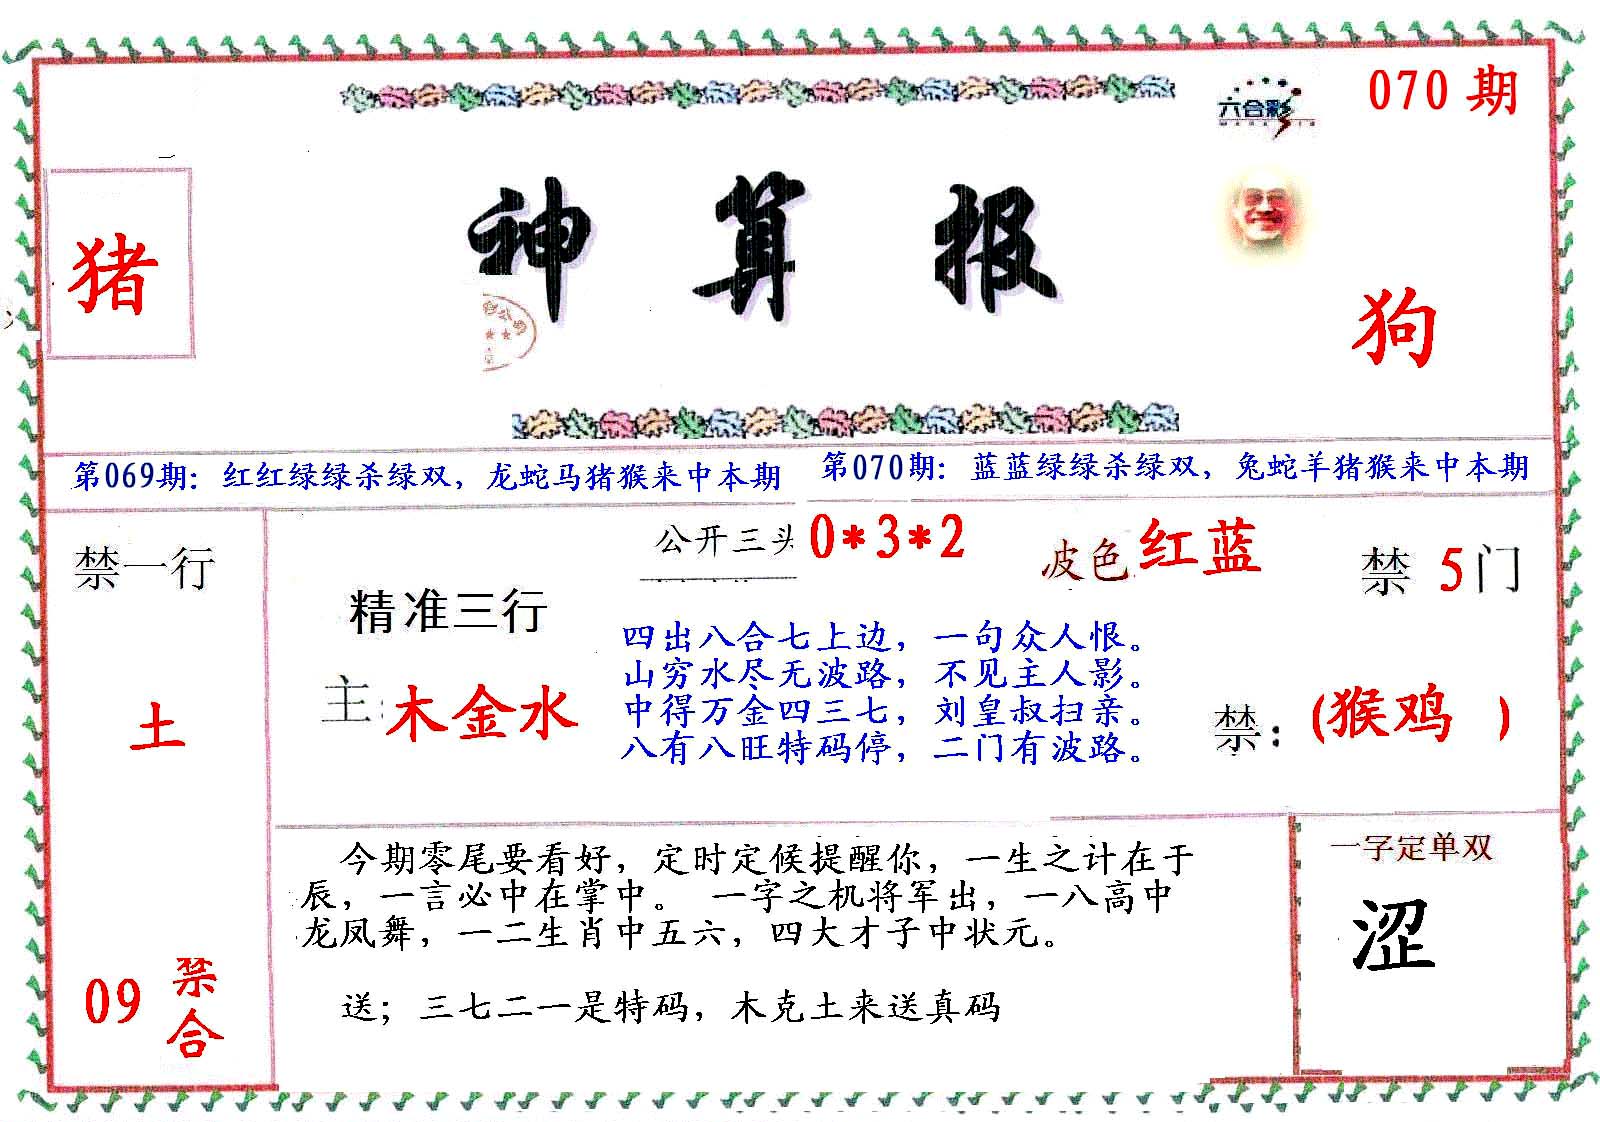 070 期
六合彩
猪
神算报
狗
第069期：红红绿绿杀绿双，龙蛇马猪猴来中本期
第070期：蓝蓝绿绿杀绿双，兔蛇羊猪猴来中本期
禁一行
土
09 禁合
公开三头 0*3*2
波色 红蓝
禁 5 门
精准三行
主: 木金水
四出八合七上边，一句众人恨。
山穷水尽无波路，不见主人影。
中得万金四三七，刘皇叔扫亲。
八有八旺特码停，二门有波路。
禁: (猴鸡 )
今期零尾要看好，定时定候提醒你，一生之计在于
辰，一言必中在掌中。 一字之机将军出，一八高中
龙凤舞，一二生肖中五六，四大才子中状元。
送；三七二一是特码，木克土来送真码
一字定单双
涩